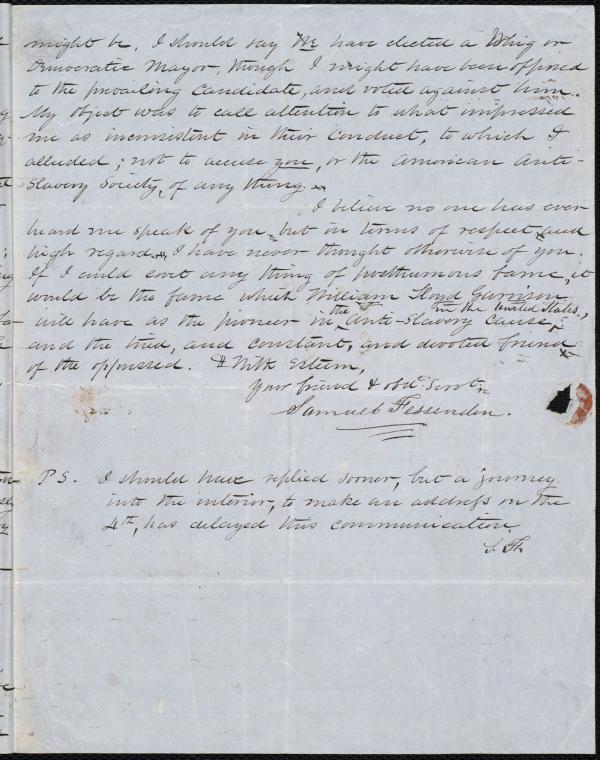 might be, I should say We have elected a Whig or
Democratic Mayor, though I might have been opposed
to the prevailing Candidate, and voted against him.
My object was to call attention to what impressed
me as inconsistent in their Conduct, to which I
alluded; not to accuse you, or the American Anti-
Slavery Society, of any thing.
I believe no one has ever
heard me speak of you, but in terms of respect and
high regard. I have never thought otherwise of you.
If I could covet any thing of posthumous fame, it
would be the fame which William Lloyd Garrison
will have as the pioneer in the Anti-Slavery Cause, in the United States,
and the tried, and constant, and devoted friend
of the oppressed. With Esteem,
Your friend & obdt. Servt.
Samuel Fessenden.
P.S. I should have replied sooner, but a journey
into the interior, to make an address on the
4th, has delayed this communication
S. F.